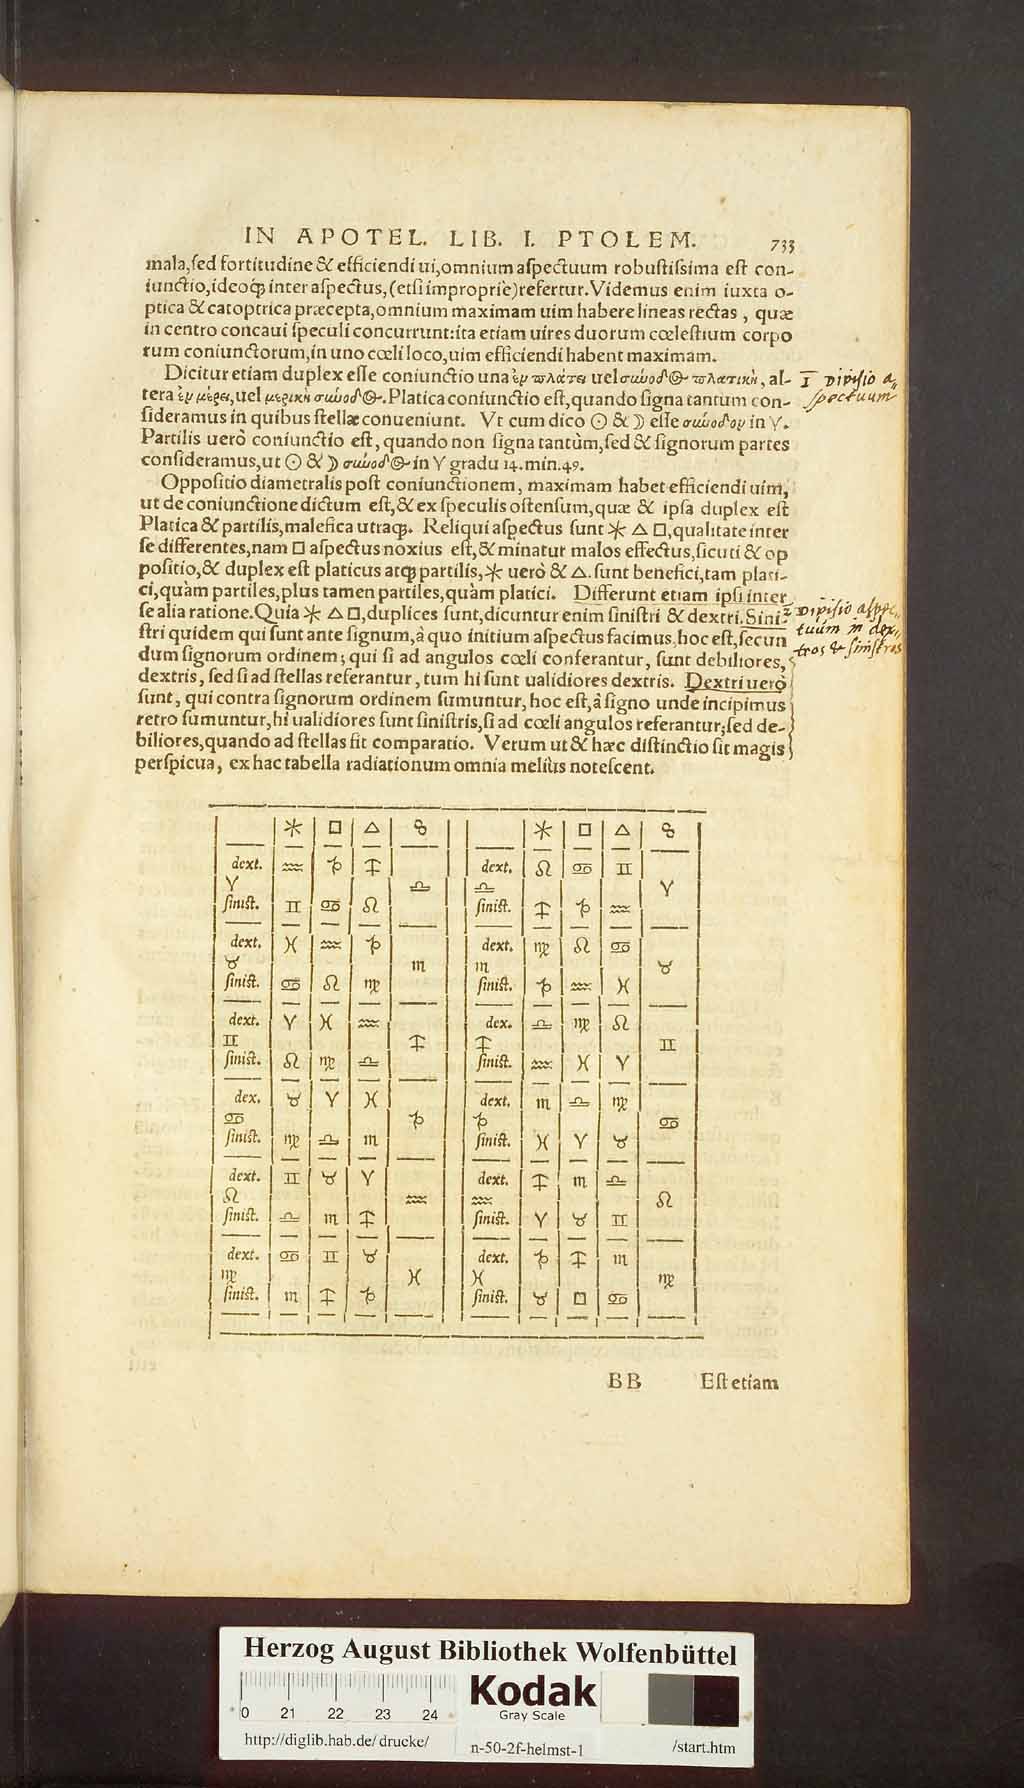 IN APOTEL. LIB. I. PTOLEM. 733
mala, sed fortitudine & efficiendi ui, omnium aſpectuum robuſtiſsima eſt con-
iunctio, ideoqꝫ inter aſpectus, (etſi impropriè) refertur. Videmus enim iuxta o-
ptica & catoptrica præcepta, omnium maximam uim habere lineas rectas, quæ
in centro concaui ſpeculi concurrunt: ita etiam uires duorum cœleſtium corpo
rum coniunctorum, in uno cœli loco, uim efficiendi habent maximam.
Dicitur etiam duplex eſſe coniunctio una ἐν πλάτει uel σύνοδος πλατικὴ, al-
tera ἐν μέρει, uel μερικὴ σύνοδος. Platica coniunctio eſt, quando ſigna tantum con-
ſideramus in quibus ſtellæ conueniunt. Vt cum dico ☉ & ☽ eſſe σύνοδον in ♈.
Partilis uerò coniunctio eſt, quando non ſigna tantùm, ſed & ſignorum partes
conſideramus, ut ☉ & ☽ σύνοδος in ♈ gradu 14. min. 49.
Oppoſitio diametralis poſt coniunctionem, maximam habet efficiendi uim,
ut de coniunctione dictum eſt, & ex ſpeculis oſtenſum, quæ & ipſa duplex eſt
Platica & partilis, malefica utraqꝫ. Reliqui aſpectus ſunt ⚹ △ □, qualitate inter
ſe differentes, nam □ aſpectus noxius eſt, & minatur malos effectus, ſicuti & op
poſitio, & duplex eſt platicus atqꝫ partilis, ⚹ uerò & △. ſunt benefici, tam plati-
ci, quàm partiles, plus tamen partiles, quàm platici. Differunt etiam ipſi inter
ſe alia ratione. Quia ⚹ △ □, duplices ſunt, dicuntur enim ſiniſtri & dextri. Sini-
ſtri quidem qui ſunt ante ſignum, à quo initium aſpectus facimus, hoc eſt, ſecun
dum ſignorum ordinem; qui ſi ad angulos cœli conferantur, ſunt debiliores,
dextris, ſed ſi ad ſtellas referantur, tum hi ſunt ualidiores dextris. Dextri uerò
ſunt, qui contra ſignorum ordinem ſumuntur, hoc eſt, à ſigno unde incipimus
retro ſumuntur, hi ualidiores ſunt ſiniſtris, ſi ad cœli angulos referantur; ſed de-
biliores, quando ad ſtellas fit comparatio. Verum ut & hæc diſtinctio ſit magis
perſpicua, ex hac tabella radiationum omnia meliùs noteſcent.
I Diviſio a-
ſpectuum
Diviſio aſpec-
tuum in dex-
tros & ſiniſtros
⚹ □ △ ☍ ⚹ □ △ ☍
dext. ♒ ♑ ♐ dext. ♌ ♋ ♊
♈ ♎ ♎ ♈
ſiniſt. ♊ ♋ ♌ ſiniſt. ♐ ♑ ♒
dext. ♓ ♒ ♑ dext. ♍ ♌ ♋
♉ ♏ ♏ ♉
ſiniſt. ♋ ♌ ♍ ſiniſt. ♑ ♒ ♓
dext. ♈ ♓ ♒ dex. ♎ ♍ ♌
♊ ♐ ♐ ♊
ſiniſt. ♌ ♍ ♎ ſiniſt. ♒ ♓ ♈
dex. ♉ ♈ ♓ dext. ♏ ♎ ♍
♋ ♑ ♑ ♋
ſiniſt. ♍ ♎ ♏ ſiniſt. ♓ ♈ ♉
dext. ♊ ♉ ♈ dext. ♐ ♏ ♎
♌ ♒ ♒ ♌
ſiniſt. ♎ ♏ ♐ ſiniſt. ♈ ♉ ♊
dext. ♋ ♊ ♉ dext. ♑ ♐ ♏
♍ ♓ ♓ ♍
ſiniſt. ♏ ♐ ♑ ſiniſt. ♉ □ ♋
BB Eſt etiam
Herzog August Bibliothek Wolfenbüttel
0 21 22 23 24
Kodak
Gray Scale
http://diglib.hab.de/drucke/ n-50-2f-helmst-1 /start.htm